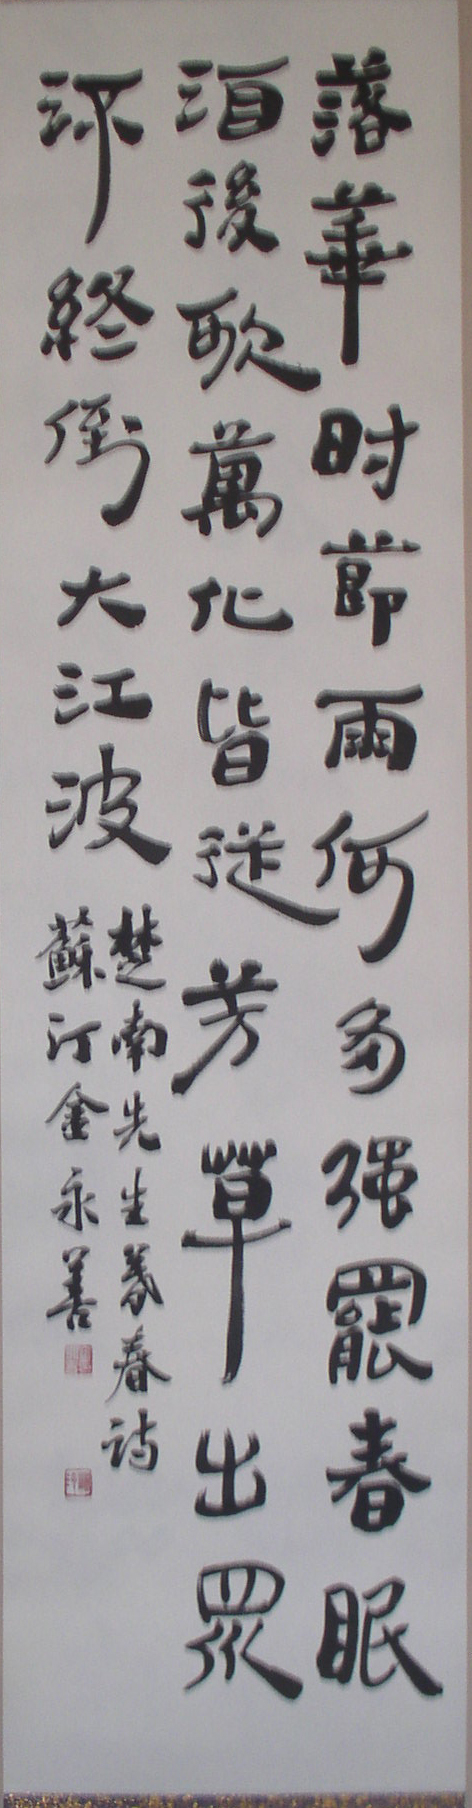 落華时節雨何多强罷春眠
酒後歌萬化皆從芳草出眾
㳅終倒大江波
楚南先生暮春詩
蘇汀金永善